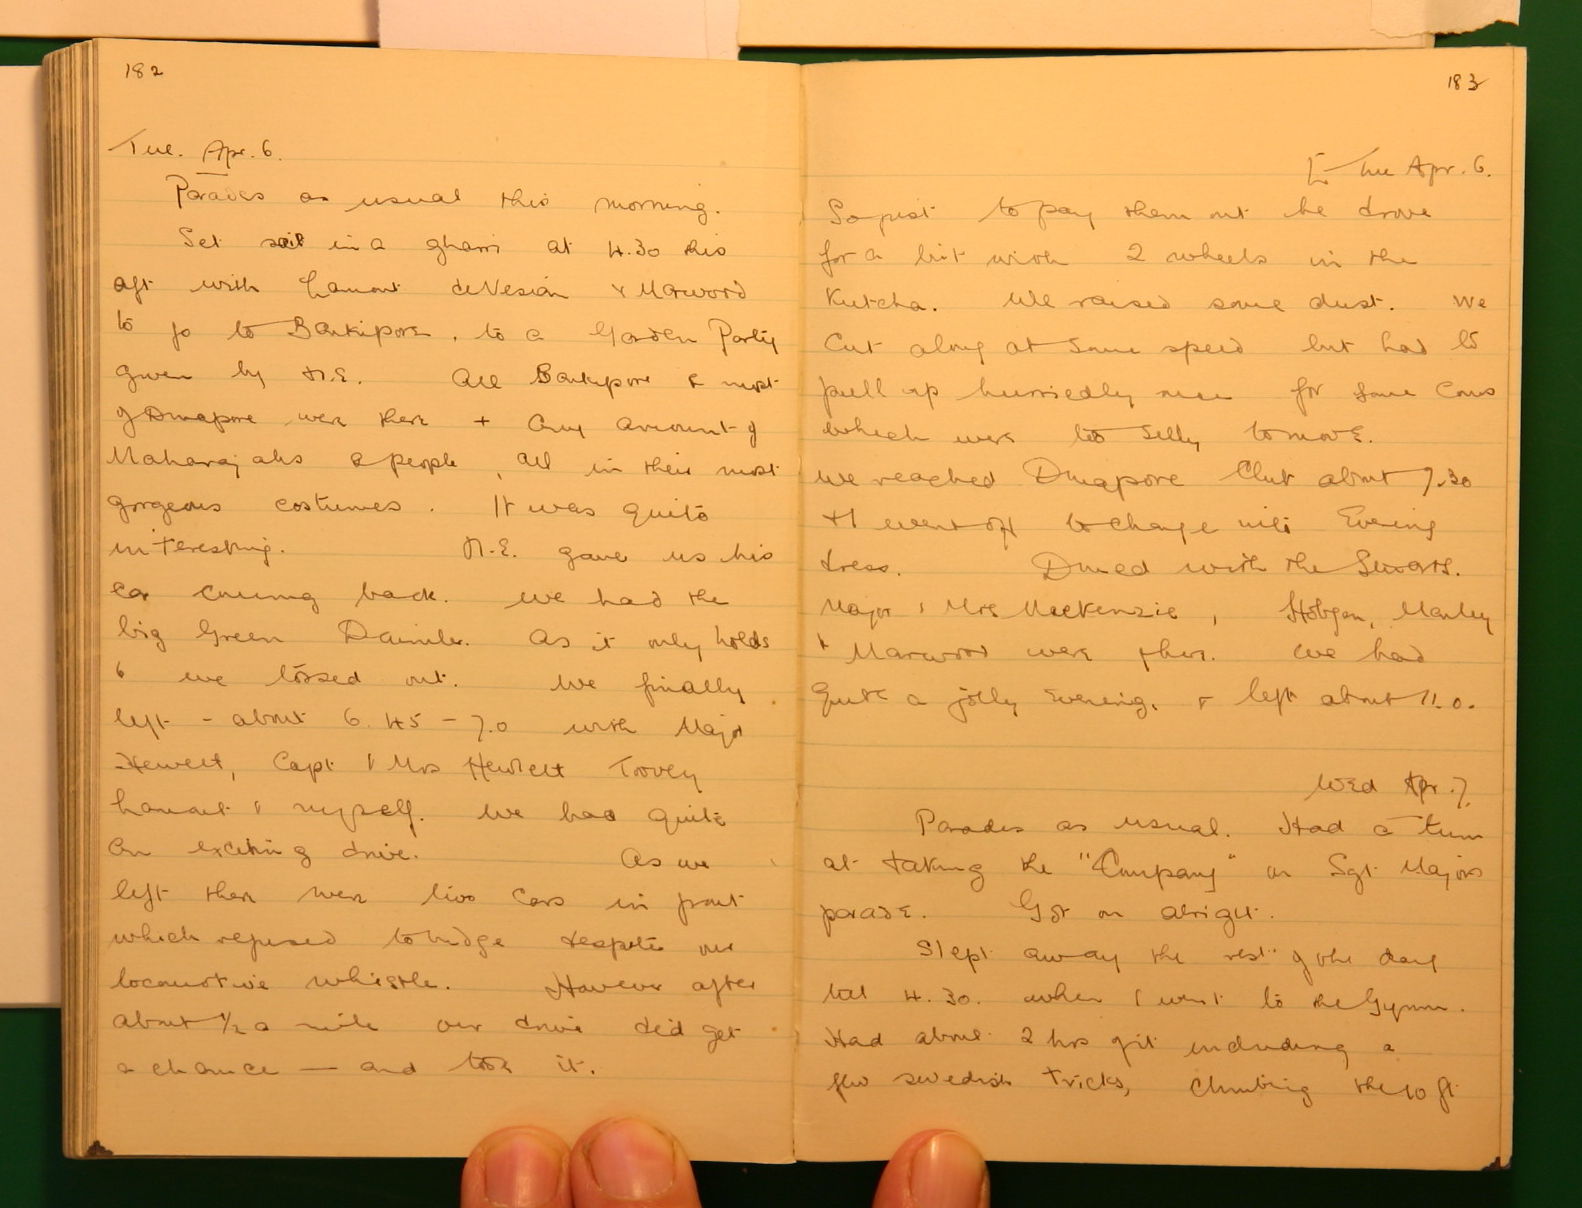 182
Tue. Apr. 6.
Parades as usual this morning.
Set sail in a gharri at 4.30 this
aft with Lamont deVesian & Marwood
to go to Bankipore, to a Garden Party
given by H.E. All Bankipore & most
of Dinapore were there + any amount of
Maharajahs & people, all in their most
gorgeous costumes. It was quite
interesting. H.E. gave us his
car coming back. We had the
big Green Daimler. As it only holds
6 we tossed out. We finally
left - about 6.45 - 7.0 with Major
Hewett, Capt & Mrs Hewlett Toovey
Lamont & myself. We had quite
an exciting drive. As we
left there were two cars in front
which refused to budge despite our
locomotive whistle. However after
about 1/2 a mile our driver did get
a chance — and took it.
183
[Tue Apr. 6.
So just to pay them out he drove
for a bit with 2 wheels in the
Kutcha. We raised some dust. We
cut along at some speed but had to
pull up hurriedly once for some cows
which were too silly to move.
We reached Dinapore Club about 7.30
& I went off to change into Evening
dress. Dined with the
Major & Mrs Mackenzie, Hobgen, Manley
& Marwood were there. We had
quite a jolly Evening, & left about 11.0.
Wed Apr. 7.
Parades as usual. Had a turn
at taking the "Company" on Sgt Majors
parade. Got on alright.
Slept away the rest of the day
till 4.30. when I went to the Gymn.
Had about 2 hrs of it including a
few swedish tricks, climbing the 10 ft